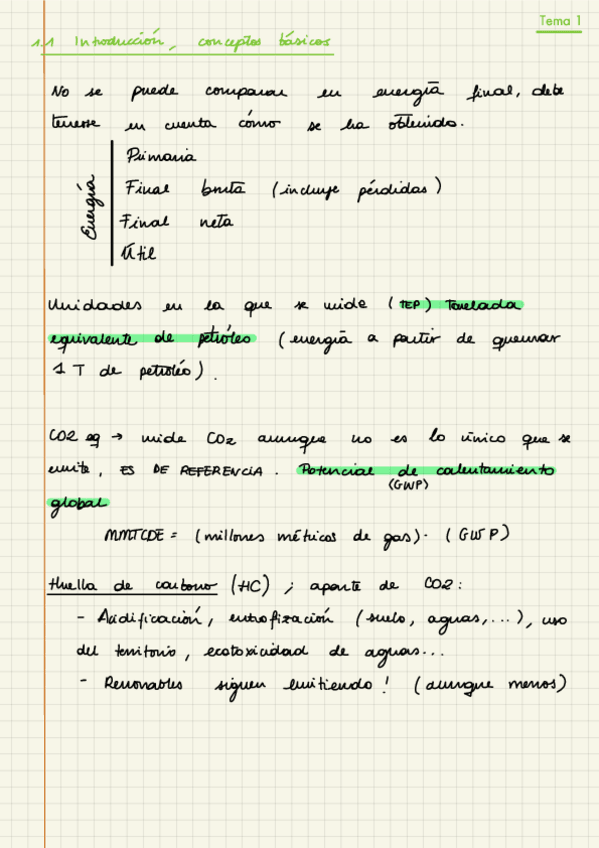 Tema 1
1.1 Introducción, conceptos básicos
No se puede comparar en energía final, debe
tenerse en cuenta cómo se ha obtenido.
Energía
Primaria
Final bruta (incluye pérdidas)
Final neta
Útil
Unidades en la que se mide (TEP) Tonelada
equivalente de petróleo (energía a partir de quemar
1 T de petróleo).
CO2 eq → mide CO2 aunque no es lo único que se
emite, ES DE REFERENCIA. Potencial de calentamiento
(GWP)
global
MMTCDE = (millones métricos de gas)· (GWP)
Huella de carbono (HC) ; aparte de CO2:
- Acidificación, eutrofización (suelo, aguas,...), uso
del territorio, ecotoxicidad de aguas...
- Renovables siguen emitiendo! (aunque menos)